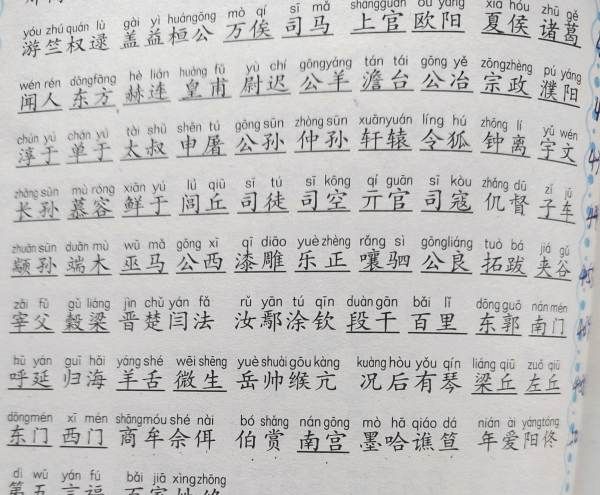 yóu zhú quán lù gài yì huángōng mò qí sī mǎ shàngguān ōu yáng xià hóu zhū gě
游竺权逯 盖益桓公 万俟 司马 上官 欧阳 夏侯 诸葛
wén rén dōngfāng hè lián huáng fǔ yù chí gōngyáng tán tái gōng yě zōngzhèng pú yáng
闻人 东方 赫连 皇甫 尉迟 公羊 澹台 公冶 宗政 濮阳
chún yú chán yú tài shū shēn tú gōng sūn zhòng sūn xuānyuán líng hú zhōng lí yǔ wén
淳于 单于 太叔 申屠 公孙 仲孙 轩辕 令狐 钟离 宇文
zhǎng sūn mù róng xiān yú lǘ qiū sī tú sī kōng qí guān sī kòu zhǎng dū zǐ jū
长孙 慕容 鲜于 闾丘 司徒 司空 亓官 司寇 仉督 子车
zhuān sūn duān mù wū mǎ gōng xī qī diāo yuè zhèng rǎng sì gōngliáng tuò bá jiá gǔ
颛孙 端木 巫马 公西 漆雕 乐正 嚷驷 公良 拓跋 夹谷
zǎi fǔ gǔ liáng jìn chǔ yán fǎ rǔ yān tú qīn duàn gān bǎi lǐ dōng guō nán mén
宰父 穀梁 晋楚闫法 汝鄢涂钦 段干 百里 东郭 南门
hū yán guī hǎi yáng shé wēi shēng yuè shuài gōu kàng kuàng hòu yǒu qín liáng qiū zuǒ qiū
呼延 归海 羊舌 微生 岳帅缑亢 况后有琴 梁丘 左丘
dōng mén xī mén shāng móu shé nài bó shǎng nán gōng mò hǎ qiáo dá nián ài yáng tóng
东门 西门 商牟佘佴 伯赏 南宫 墨哈谯笪 年爱阳佟
dì wǔ yán fú bǎi jiā xìng zhōng
第五 言福 百家姓终